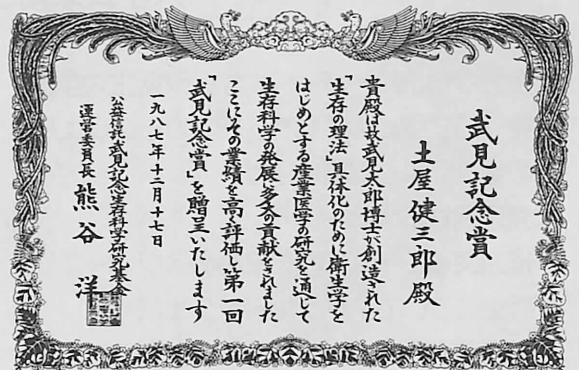 武見記念賞
土屋健三郎殿
貴殿は故武見太郎博士が創造された
「生存の理法」具体化のために衛生学を
はじめとする産業医学の研究を通じて
生存科学の発展に多大の貢献をされました
ここにその業績を高く評価し第一回
「武見記念賞」を贈呈いたします
一九八七年十二月十七日
公益信託武見記念生存科学研究基金
運営委員長 熊谷洋